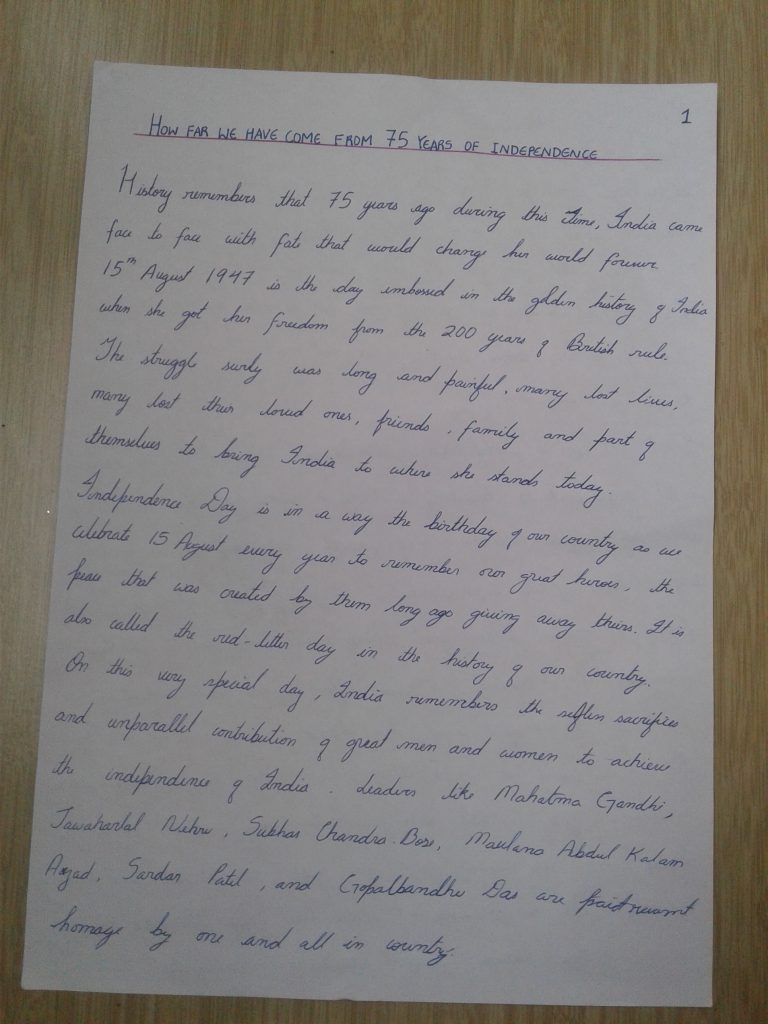 1
HOW FAR WE HAVE COME FROM 75 YEARS OF INDEPENDENCE
History remembers that 75 years ago during this time, India came
face to face with fate that would change her world forever.
15th August 1947 is the day embossed in the golden history of India
when she got her freedom from the 200 years of British rule.
The struggle surly was long and painful, many lost lives,
many lost their loved ones, friends, family and part of
themselves to bring India to where she stands today.
Independence Day is in a way the birthday of our country as we
celebrate 15 August every year to remember our great heroes, the
peace that was created by them long ago giving away theirs. It is
also called the red-letter day in the history of our country.
On this very special day, India remembers the selfless sacrifices
and unparallel contribution of great men and women to achieve
the independence of India. Leaders like Mahatma Gandhi,
Jawaharlal Nehru, Subhas Chandra Bose, Maulana Abdul Kalam
Azad, Sardar Patel, and Gopalbandhu Das are paid
homage by one and all in country.